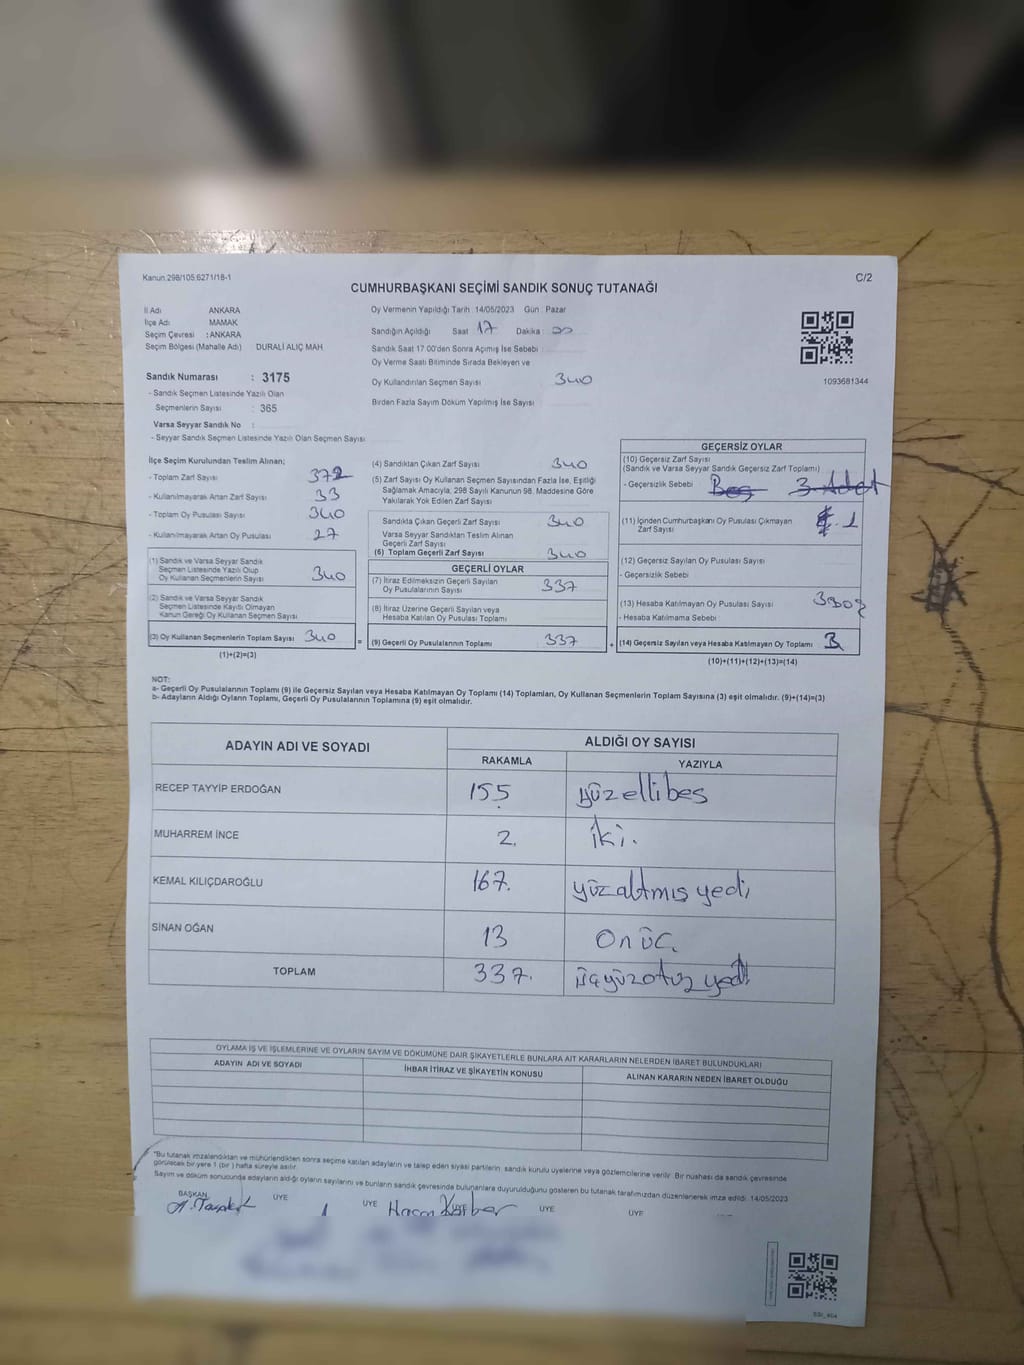 Kanun:298/105,6271/18-1
C/2
CUMHURBAŞKANI SEÇİMİ SANDIK SONUÇ TUTANAĞI
İl Adı ANKARA
İlçe Adı MAMAK
Seçim Çevresi : ANKARA
Seçim Bölgesi (Mahalle Adı) DURALİ ALIÇ MAH.
Oy Vermenin Yapıldığı Tarih :14/05/2023 Gün : Pazar
Sandığın Açıldığı Saat 17 Dakika : 00
Sandık Saat 17:00'den Sonra Açımış İse Sebebi :
Oy Verme Saati Bitiminde Sırada Bekleyen ve
Oy Kullandırılan Seçmen Sayısı 340
Birden Fazla Sayım Döküm Yapılmış İse Sayısı
1093681344
Sandık Numarası : 3175
- Sandık Seçmen Listesinde Yazılı Olan
Seçmenlerin Sayısı : 365
Varsa Seyyar Sandık No :
- Seyyar Sandık Seçmen Listesinde Yazılı Olan Seçmen Sayısı
İlçe Seçim Kurulundan Teslim Alınan;
- Toplam Zarf Sayısı 372
- Kullanılmayarak Artan Zarf Sayısı 33
- Toplam Oy Pusulası Sayısı 340
- Kullanılmayarak Artan Oy Pusulası 27
(1) Sandık ve Varsa Seyyar Sandık
Seçmen Listesinde Yazılı Olup
Oy Kullanan Seçmenlerin Sayısı 340
(2) Sandık ve Varsa Seyyar Sandık
Seçmen Listesinde Kayıtlı Olmayan
Kanun Gereği Oy Kullanan Seçmen Sayısı
(3) Oy Kullanan Seçmenlerin Toplam Sayısı 340 =
(1)+(2)=(3)
(4) Sandıktan Çıkan Zarf Sayısı 340
(5) Zarf Sayısı Oy Kullanan Seçmen Sayısından Fazla İse, Eşitliği
Sağlamak Amacıyla, 298 Sayılı Kanunun 98. Maddesine Göre
Yakılarak Yok Edilen Zarf Sayısı
Sandıkta Çıkan Geçerli Zarf Sayısı 340
Varsa Seyyar Sandıktan Teslim Alınan
Geçerli Zarf Sayısı
(6) Toplam Geçerli Zarf Sayısı 340
GEÇERLİ OYLAR
(7) İtiraz Edilmeksizin Geçerli Sayılan
Oy Pusulalarının Sayısı 337
(8) İtiraz Üzerine Geçerli Sayılan veya
Hesaba Katılan Oy Pusulası Toplamı
(9) Geçerli Oy Pusulalarının Toplamı 337 +
GEÇERSİZ OYLAR
(10) Geçersiz Zarf Sayısı
(Sandık ve Varsa Seyyar Sandık Geçersiz Zarf Toplamı)
- Geçersizlik Sebebi Boş 3 Adet
(11) İçinden Cumhurbaşkanı Oy Pusulası Çıkmayan
Zarf Sayısı 1
(12) Geçersiz Sayılan Oy Pusulası Sayısı
- Geçersizlik Sebebi
(13) Hesaba Katılmayan Oy Pusulası Sayısı
- Hesaba Katılmama Sebebi
(14) Geçersiz Sayılan veya Hesaba Katılmayan Oy Toplamı 3
(10)+(11)+(12)+(13)=(14)
NOT:
a- Geçerli Oy Pusulalarının Toplamı (9) ile Geçersiz Sayılan veya Hesaba Katılmayan Oy Toplamı (14) Toplamları, Oy Kullanan Seçmenlerin Toplam Sayısına (3) eşit olmalıdır. (9)+(14)=(3)
b- Adayların Aldığı Oyların Toplamı, Geçerli Oy Pusulalarının Toplamına (9) eşit olmalıdır.
ADAYIN ADI VE SOYADI ALDIĞI OY SAYISI
RAKAMLA YAZIYLA
RECEP TAYYİP ERDOĞAN 155 yüzellibeş
MUHARREM İNCE 2. iki.
KEMAL KILIÇDAROĞLU 167. yüzaltmışyedi
SİNAN OĞAN 13 Onüç.
TOPLAM 337. üçyüzotuzyedi
OYLAMA İŞ VE İŞLEMLERİNE VE OYLARIN SAYIM VE DÖKÜMÜNE DAİR ŞİKAYETLERLE BUNLARA AİT KARARLARIN NELERDEN İBARET BULUNDUKLARI
ADAYIN ADI VE SOYADI İHBAR İTİRAZ VE ŞİKAYETİN KONUSU ALINAN KARARIN NEDEN İBARET OLDUĞU
"Bu tutanak imzalandıktan ve mühürlendikten sonra seçime katılan adayların ve talep eden siyasi partilerin, sandık kurulu üyelerine veya gözlemcilerine verilir. Bir nüshası da sandık çevresinde
görülecek bir yere 1 (bir ) hafta süreyle asılır.
Sayım ve döküm sonucunda adayların aldığı oyların sayılarını ve bunların sandık çevresinde bulunanlara duyurulduğunu gösteren bu tutanak tarafımızdan düzenlenerek imza edildi. 14/05/2023
BAŞKAN ÜYE ÜYE ÜYE ÜYE ÜYE